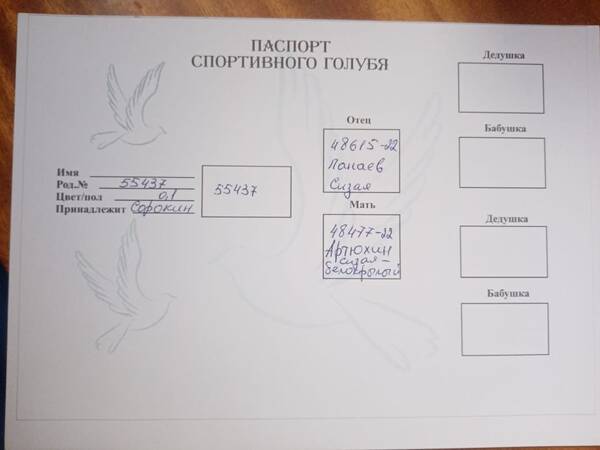 ПАСПОРТ
СПОРТИВНОГО ГОЛУБЯ
Имя
Род.№ 55437
Цвет/пол 0,1
Принадлежит Сорокин
55437
Отец
48615-22
Папаев
Сизая
Мать
48477-22
Артюхин
сизая-
белокрылый
Дедушка
Бабушка
Дедушка
Бабушка